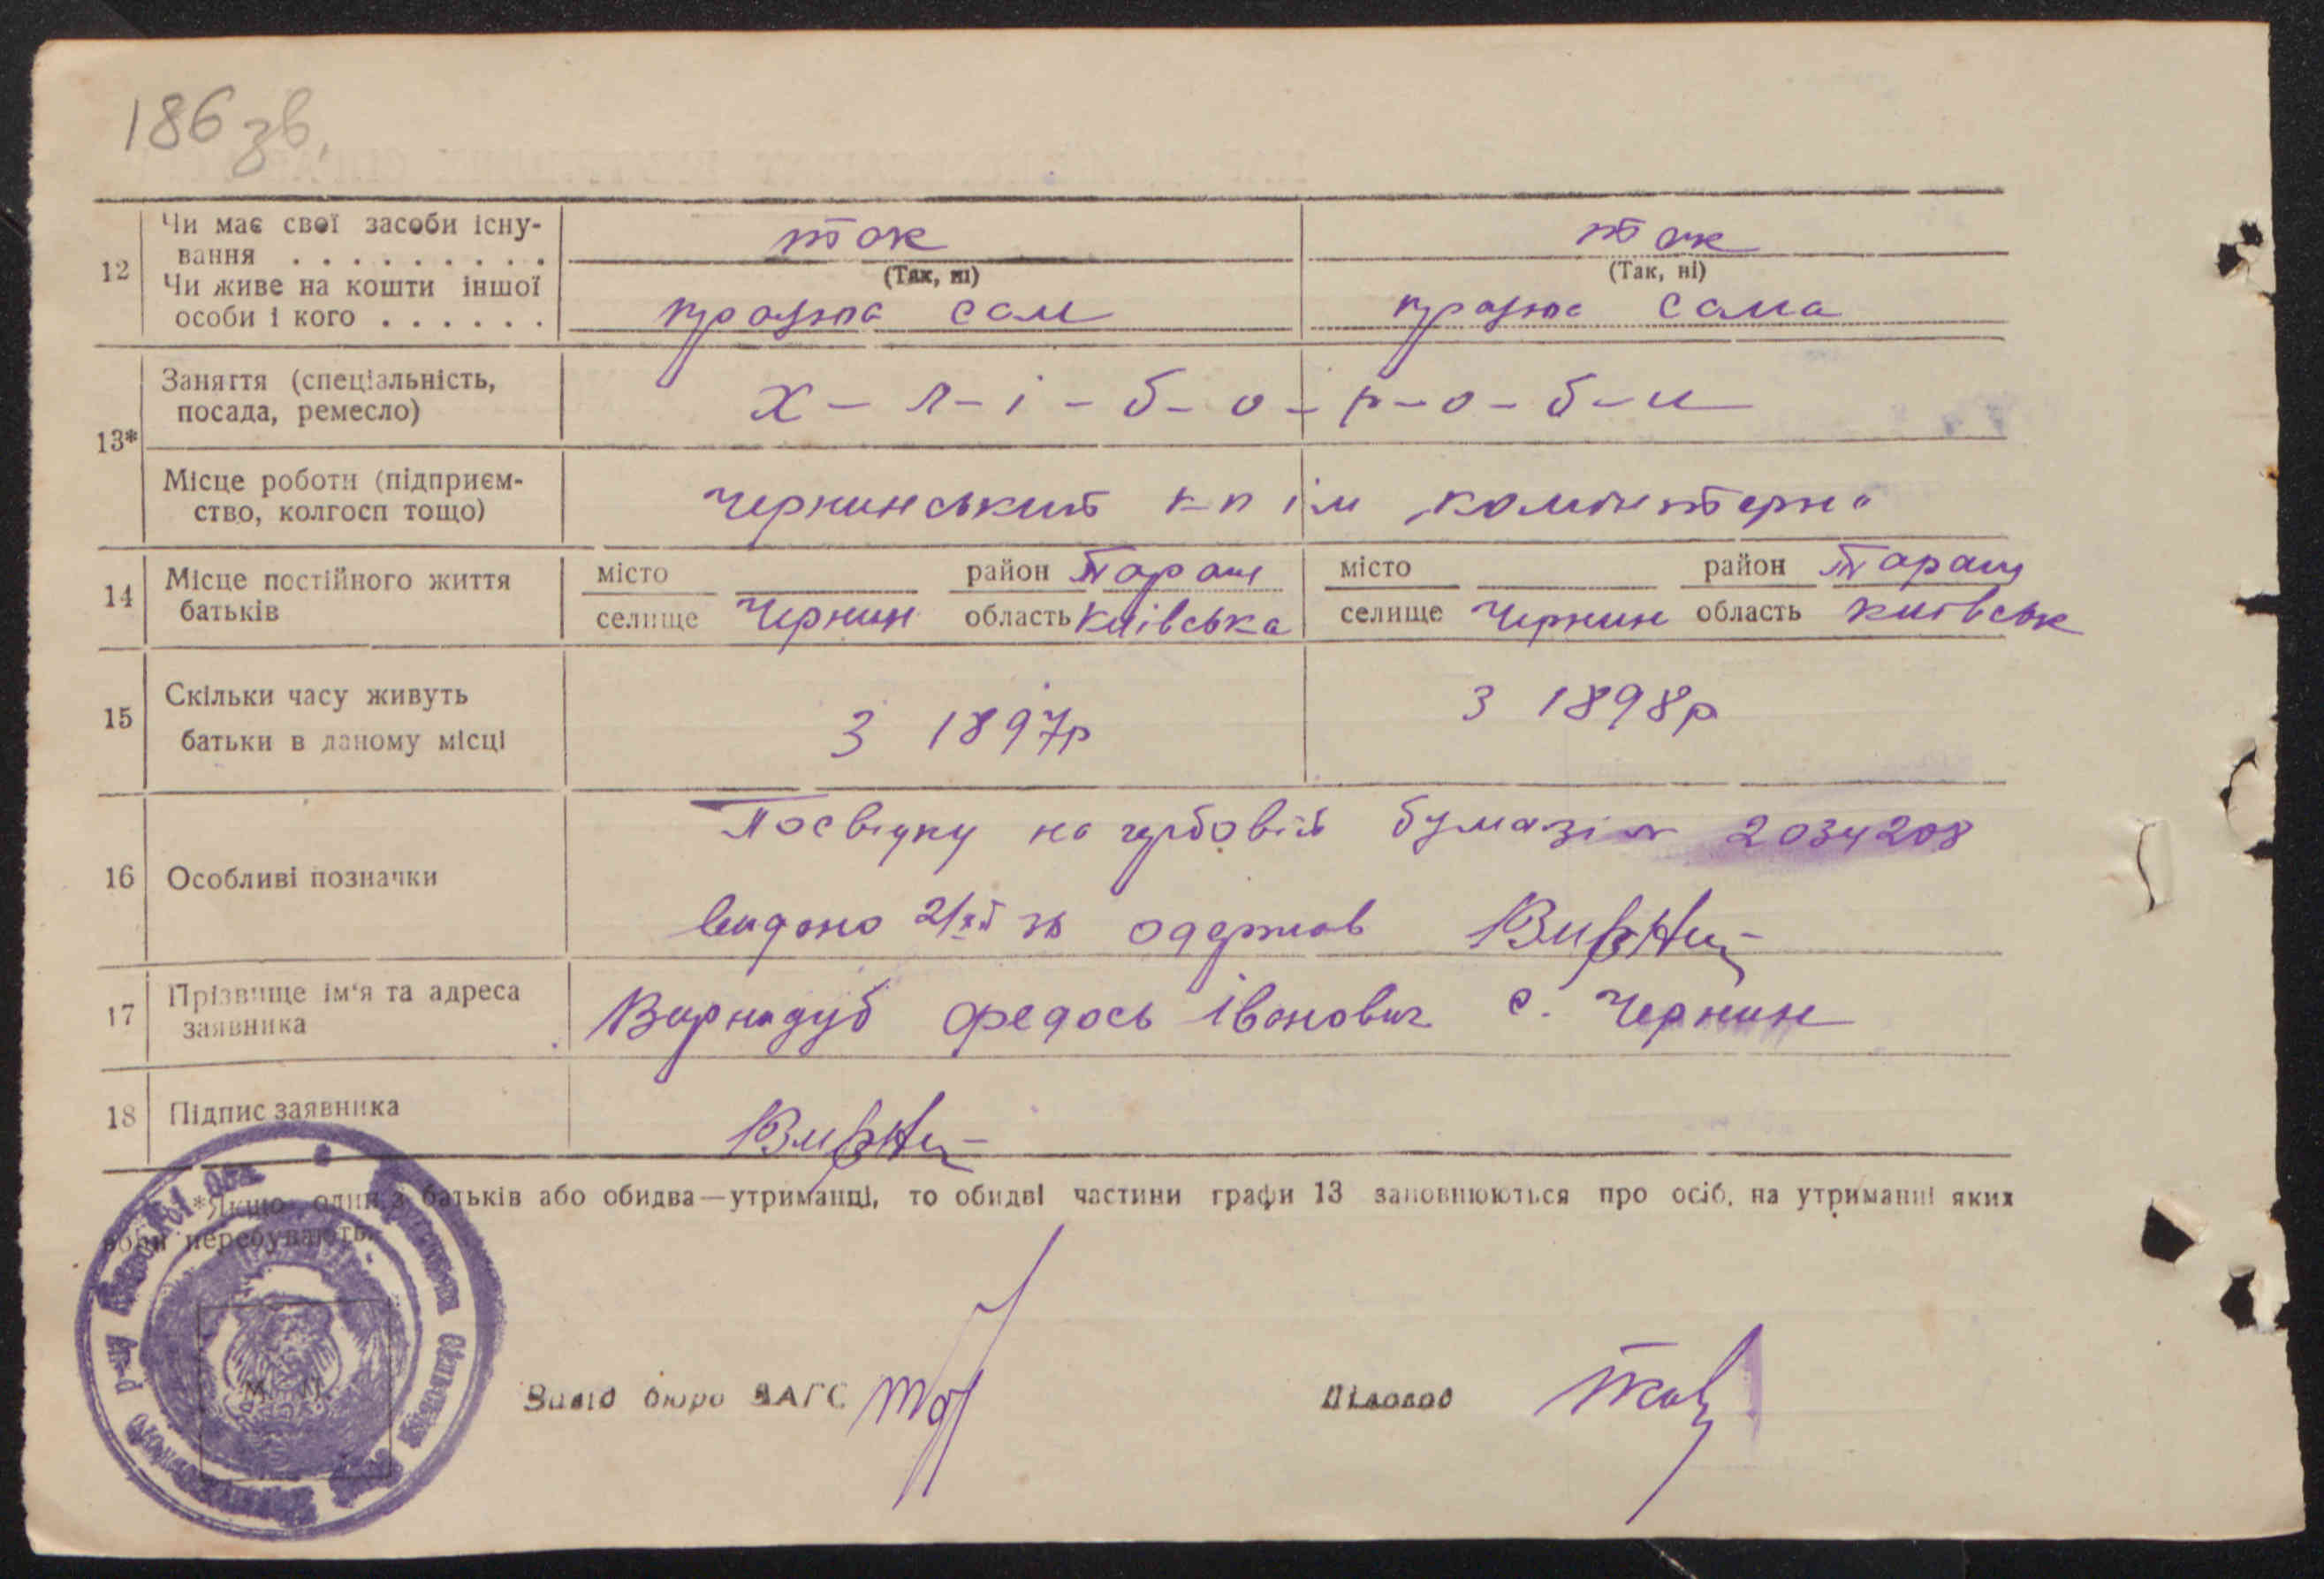 186 зв.
12
Чи має свої засоби існу-
вання . . . . . . . . .
так
так
(Так, ні)
(Так, ні)
Чи живе на кошти іншої
особи і кого . . . . . .
сам
сама
13*
Заняття (спеціальність,
посада, ремесло)
х-л-і-б-о-р-о-б-и
Місце роботи (підприєм-
ство, колгосп тощо)
Чернинський к-п ім „комінтерна"
14
Місце постійного життя
батьків
місто район Таращ
селище Чернин область Київська
місто район Таращ
селище Чернин область Київськ
15
Скільки часу живуть
батьки в даному місці
З 1897р
З 1898р
16
Особливі позначки
Посвідку на гербовій бумазі № 2034208
видано 21/ХІ одержав
17
Прізвище ім'я та адреса
заявника
Вирнидуб Федось Іванович с. Чернин
18
Підпис заявника
*Якщо один з батьків або обидва—утриманці, то обидві частини графи 13 заповнюються про осіб, на утриманні яких
вони перебувають.
М. П.
Завід бюро ЗАГС
Діловод